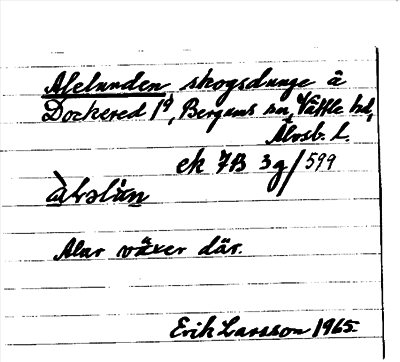 Alelunden, skogsdunge å
Dockered 1⁹, Bergums sn, Vättle hd,
Älvsb. l.
ek 7B 3g/599
àləlún
Alar växer där.
Erik Larsson 1965.